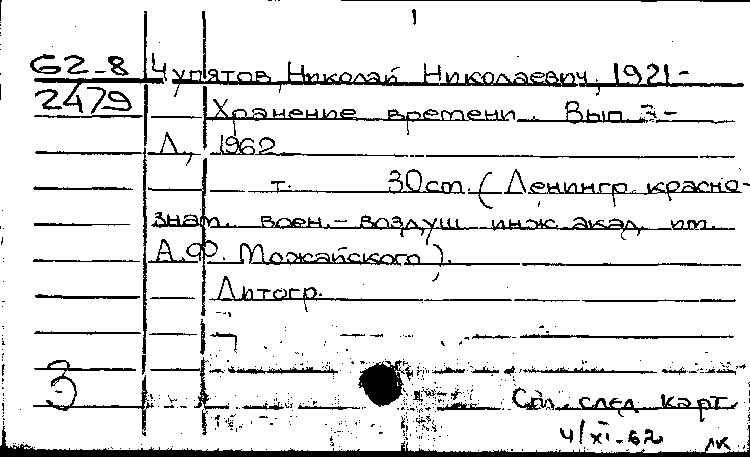 1
62-8 Чупятов, Николай Николаевич, 1921-
2479 Хранение времени. Вып 3-
Л., 1962
т. 30см. (Ленингр. красно-
знам. воен.-воздуш инж акад. им.
А.Ф. Можайского).
Литогр.
3
См. след карт.
4/XI-62 ЛК